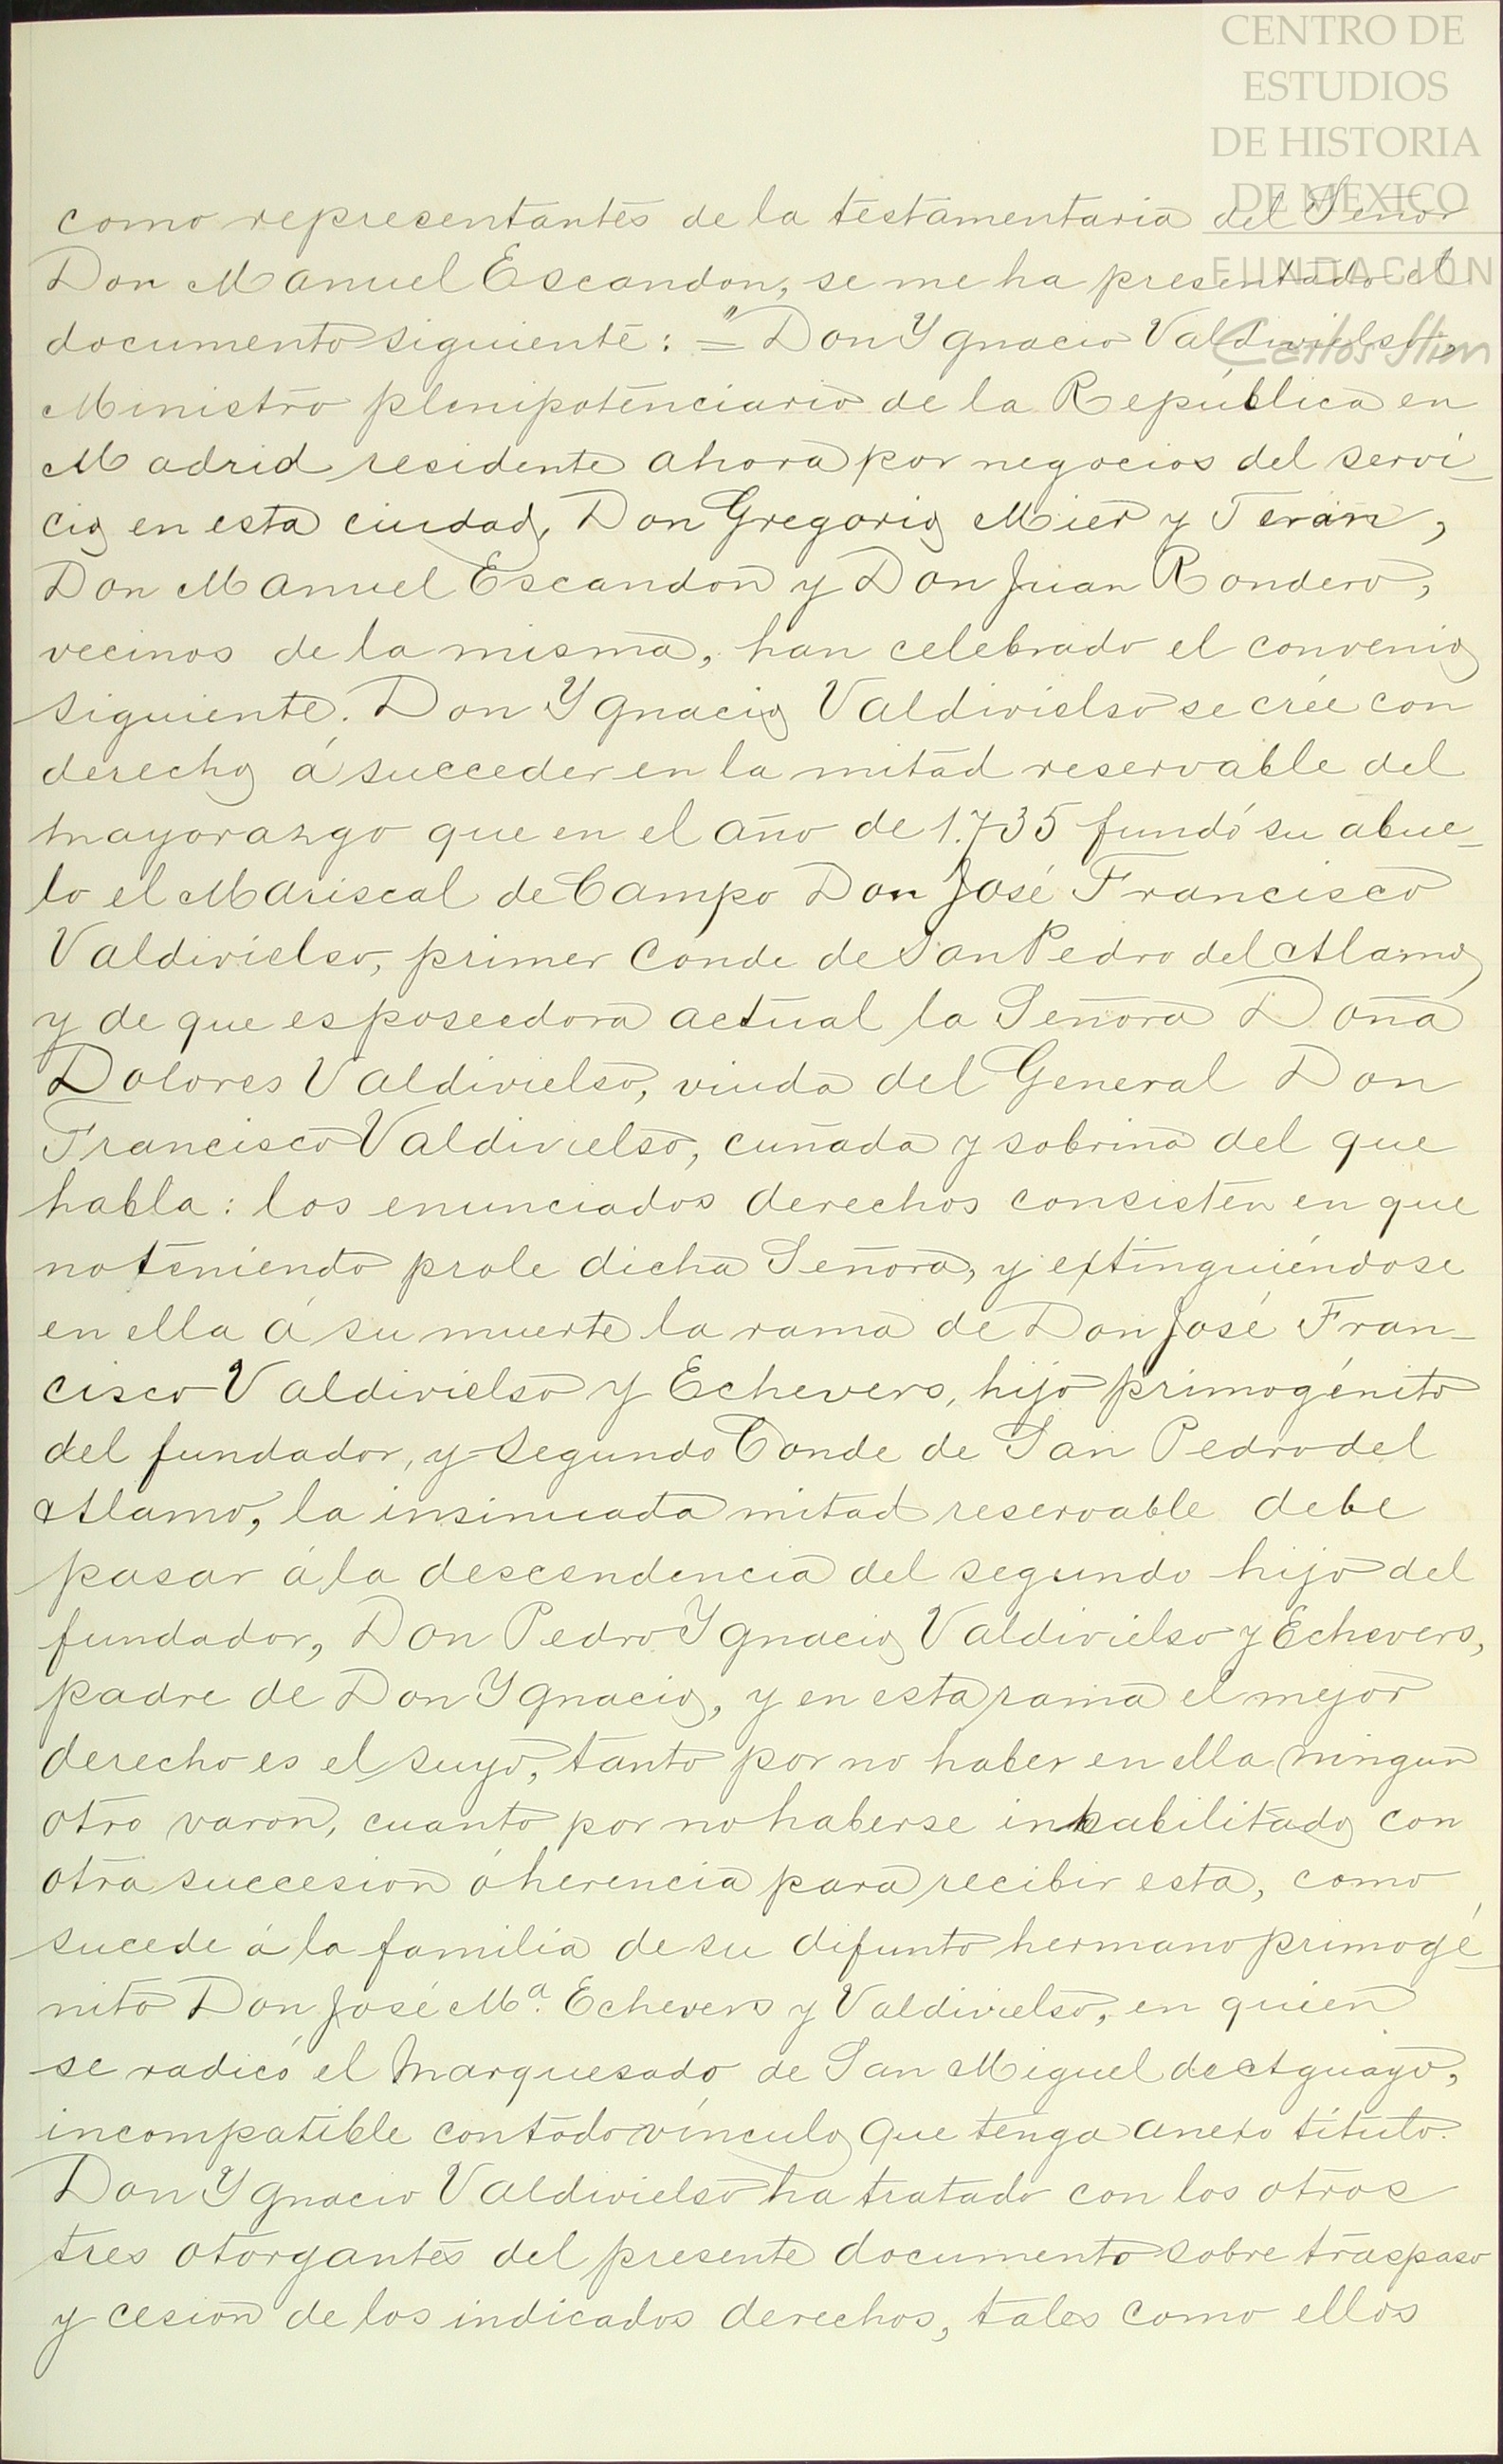 CENTRO DE
ESTUDIOS
DE HISTORIA
DE MEXICO
FUNDACIÓN
Carlos Slim
como representantes de la testamentaria del Señor
Don Manuel Escandon, se me ha presentado el
documento siguiente: = "Don Ygnacio Valdivielso,
Ministro plenipotenciario de la República en
Madrid residente ahora por negocios del servi-
cio en esta ciudad, Don Gregorio Mier y Terán,
Don Manuel Escandon y Don Juan Rondero,
vecinos de la misma, han celebrado el convenio
siguiente. Don Ygnacio Valdivielso se crée con
derecho á succeder en la mitad reservable del
mayorazgo que en el año de 1.735 fundó su abue-
lo el Mariscal de Campo Don José Francisco
Valdivielso, primer Conde de San Pedro del Alamo
y de que es poseedora actual la Señora Doña
Dolores Valdivielso, viuda del General Don
Francisco Valdivielso, cuñada y sobrina del que
habla: los enunciados derechos consisten en que
no teniendo prole dicha Señora, y extinguiéndose
en ella á su muerte la rama de Don José Fran-
cisco Valdivielso y Echevers, hijo primogénito
del fundador, y segundo Conde de San Pedro del
Alamo, la insinuada mitad reservable debe
pasar á la descendencia del segundo hijo del
fundador, Don Pedro Ygnacio Valdivielso y Echevers,
padre de Don Ygnacio, y en esta rama el mejor
derecho es el suyo, tanto por no haber en ella ningun
otro varon, cuanto por no haberse inhabilitado con
otra succesion ó herencia para recibir esta, como
sucede á la familia de su difunto hermano primogé-
nito Don José Ma. Echevers y Valdivielso, en quien
se radicó el Marquesado de San Miguel de Aguayo,
incompatible con todo vínculo que tenga anexo título.
Don Ygnacio Valdivielso ha tratado con los otros
tres otorgantes del presente documento sobre traspaso
y cesion de los indicados derechos, tales como ellos